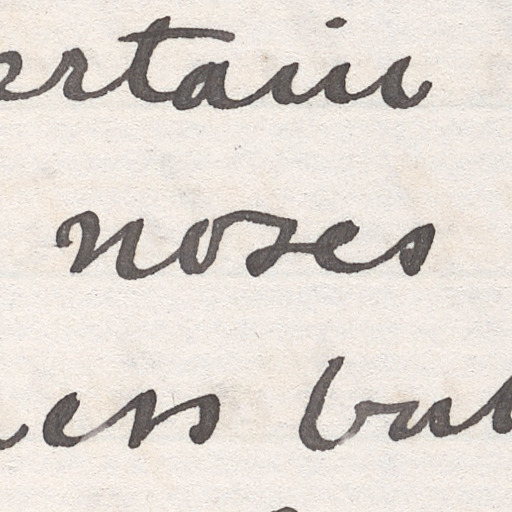 ertain
noses
ers but